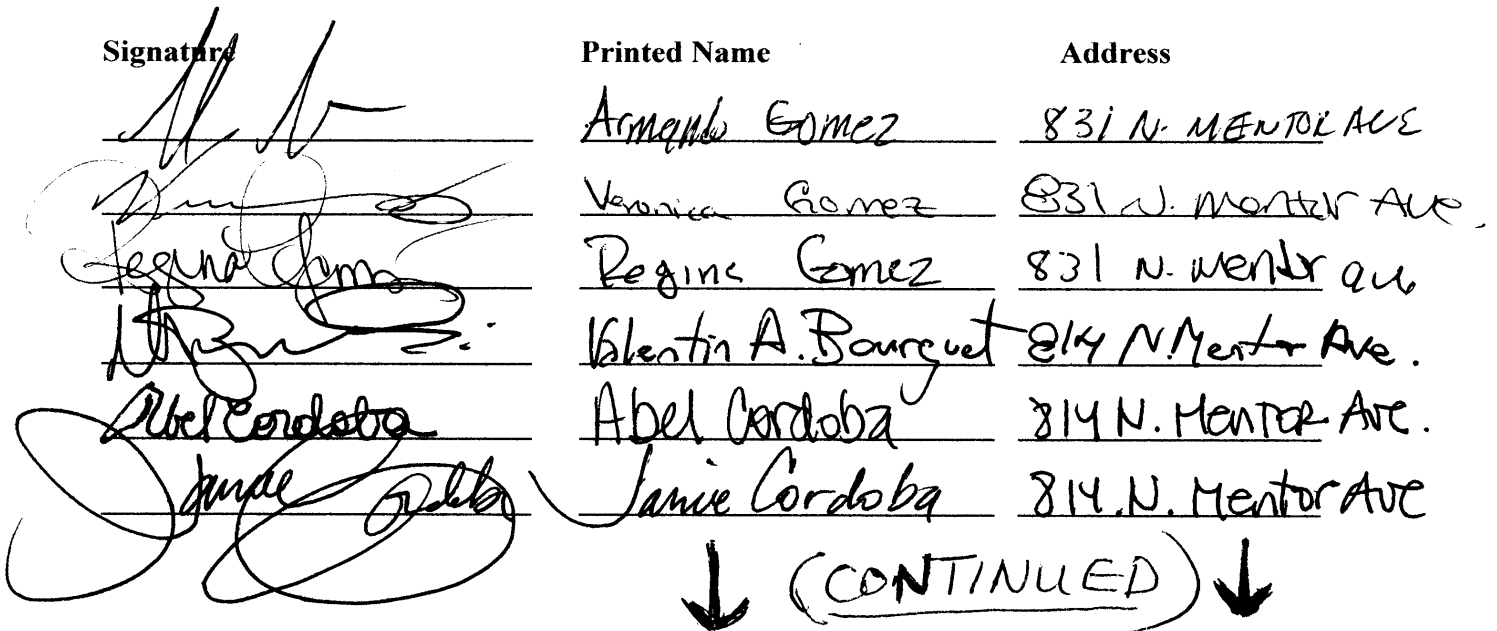 Signature Printed Name Address
Armando Gomez 831 N. MENTOR AVE
Veronica Gomez 831 N. Mentor Ave.
Regina Gomez Regina Gomez 831 N. Mentor ave
Valentin A. Bourguet 814 N. Mentor Ave.
Abel Cordoba Abel Cordoba 814 N. MENTOR AVE.
Janie Cordoba Janie Cordoba 814.N. Mentor Ave
(CONTINUED)